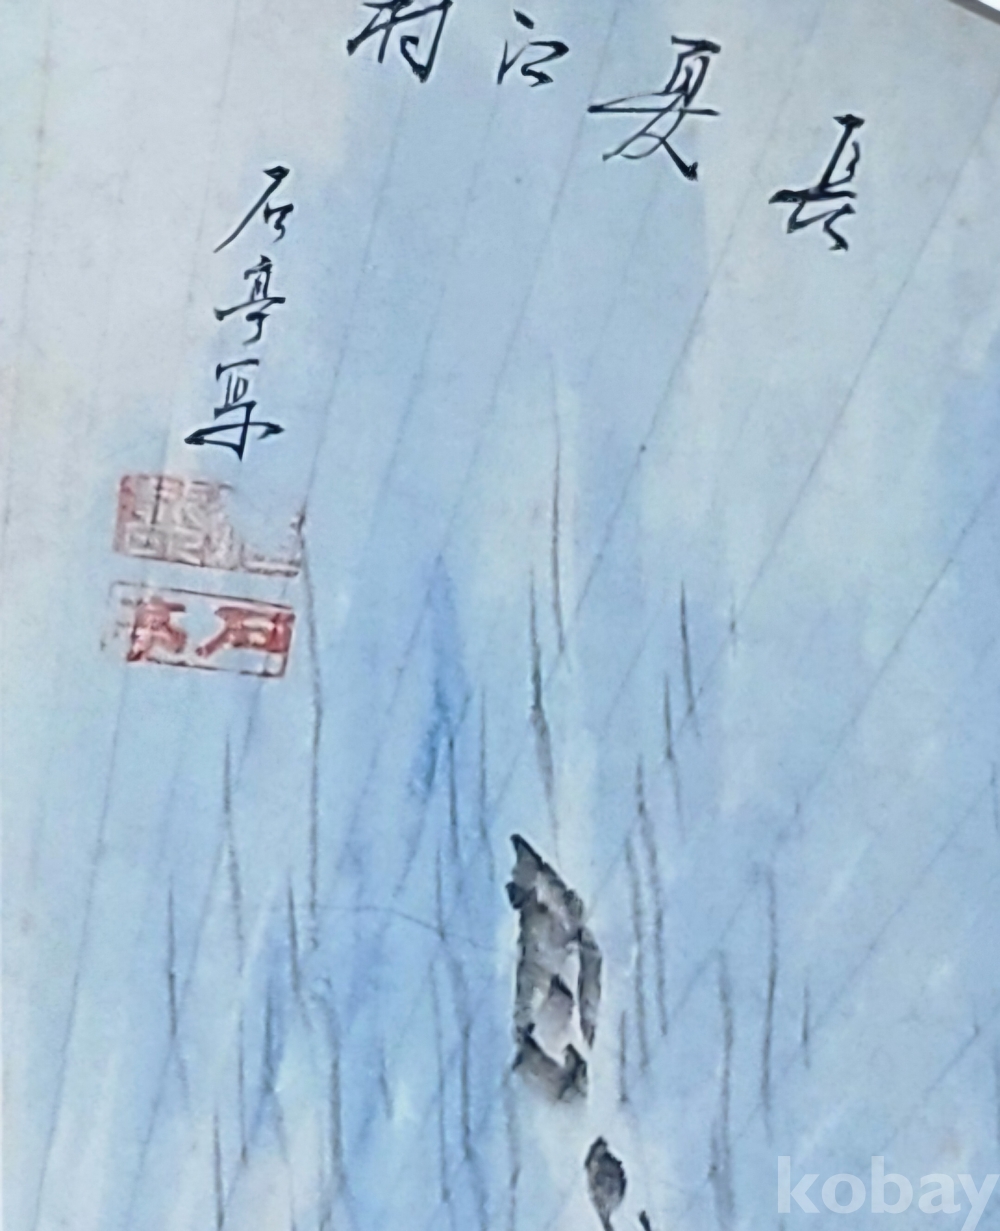 長夏江村
石亭寫
石亭
kobay